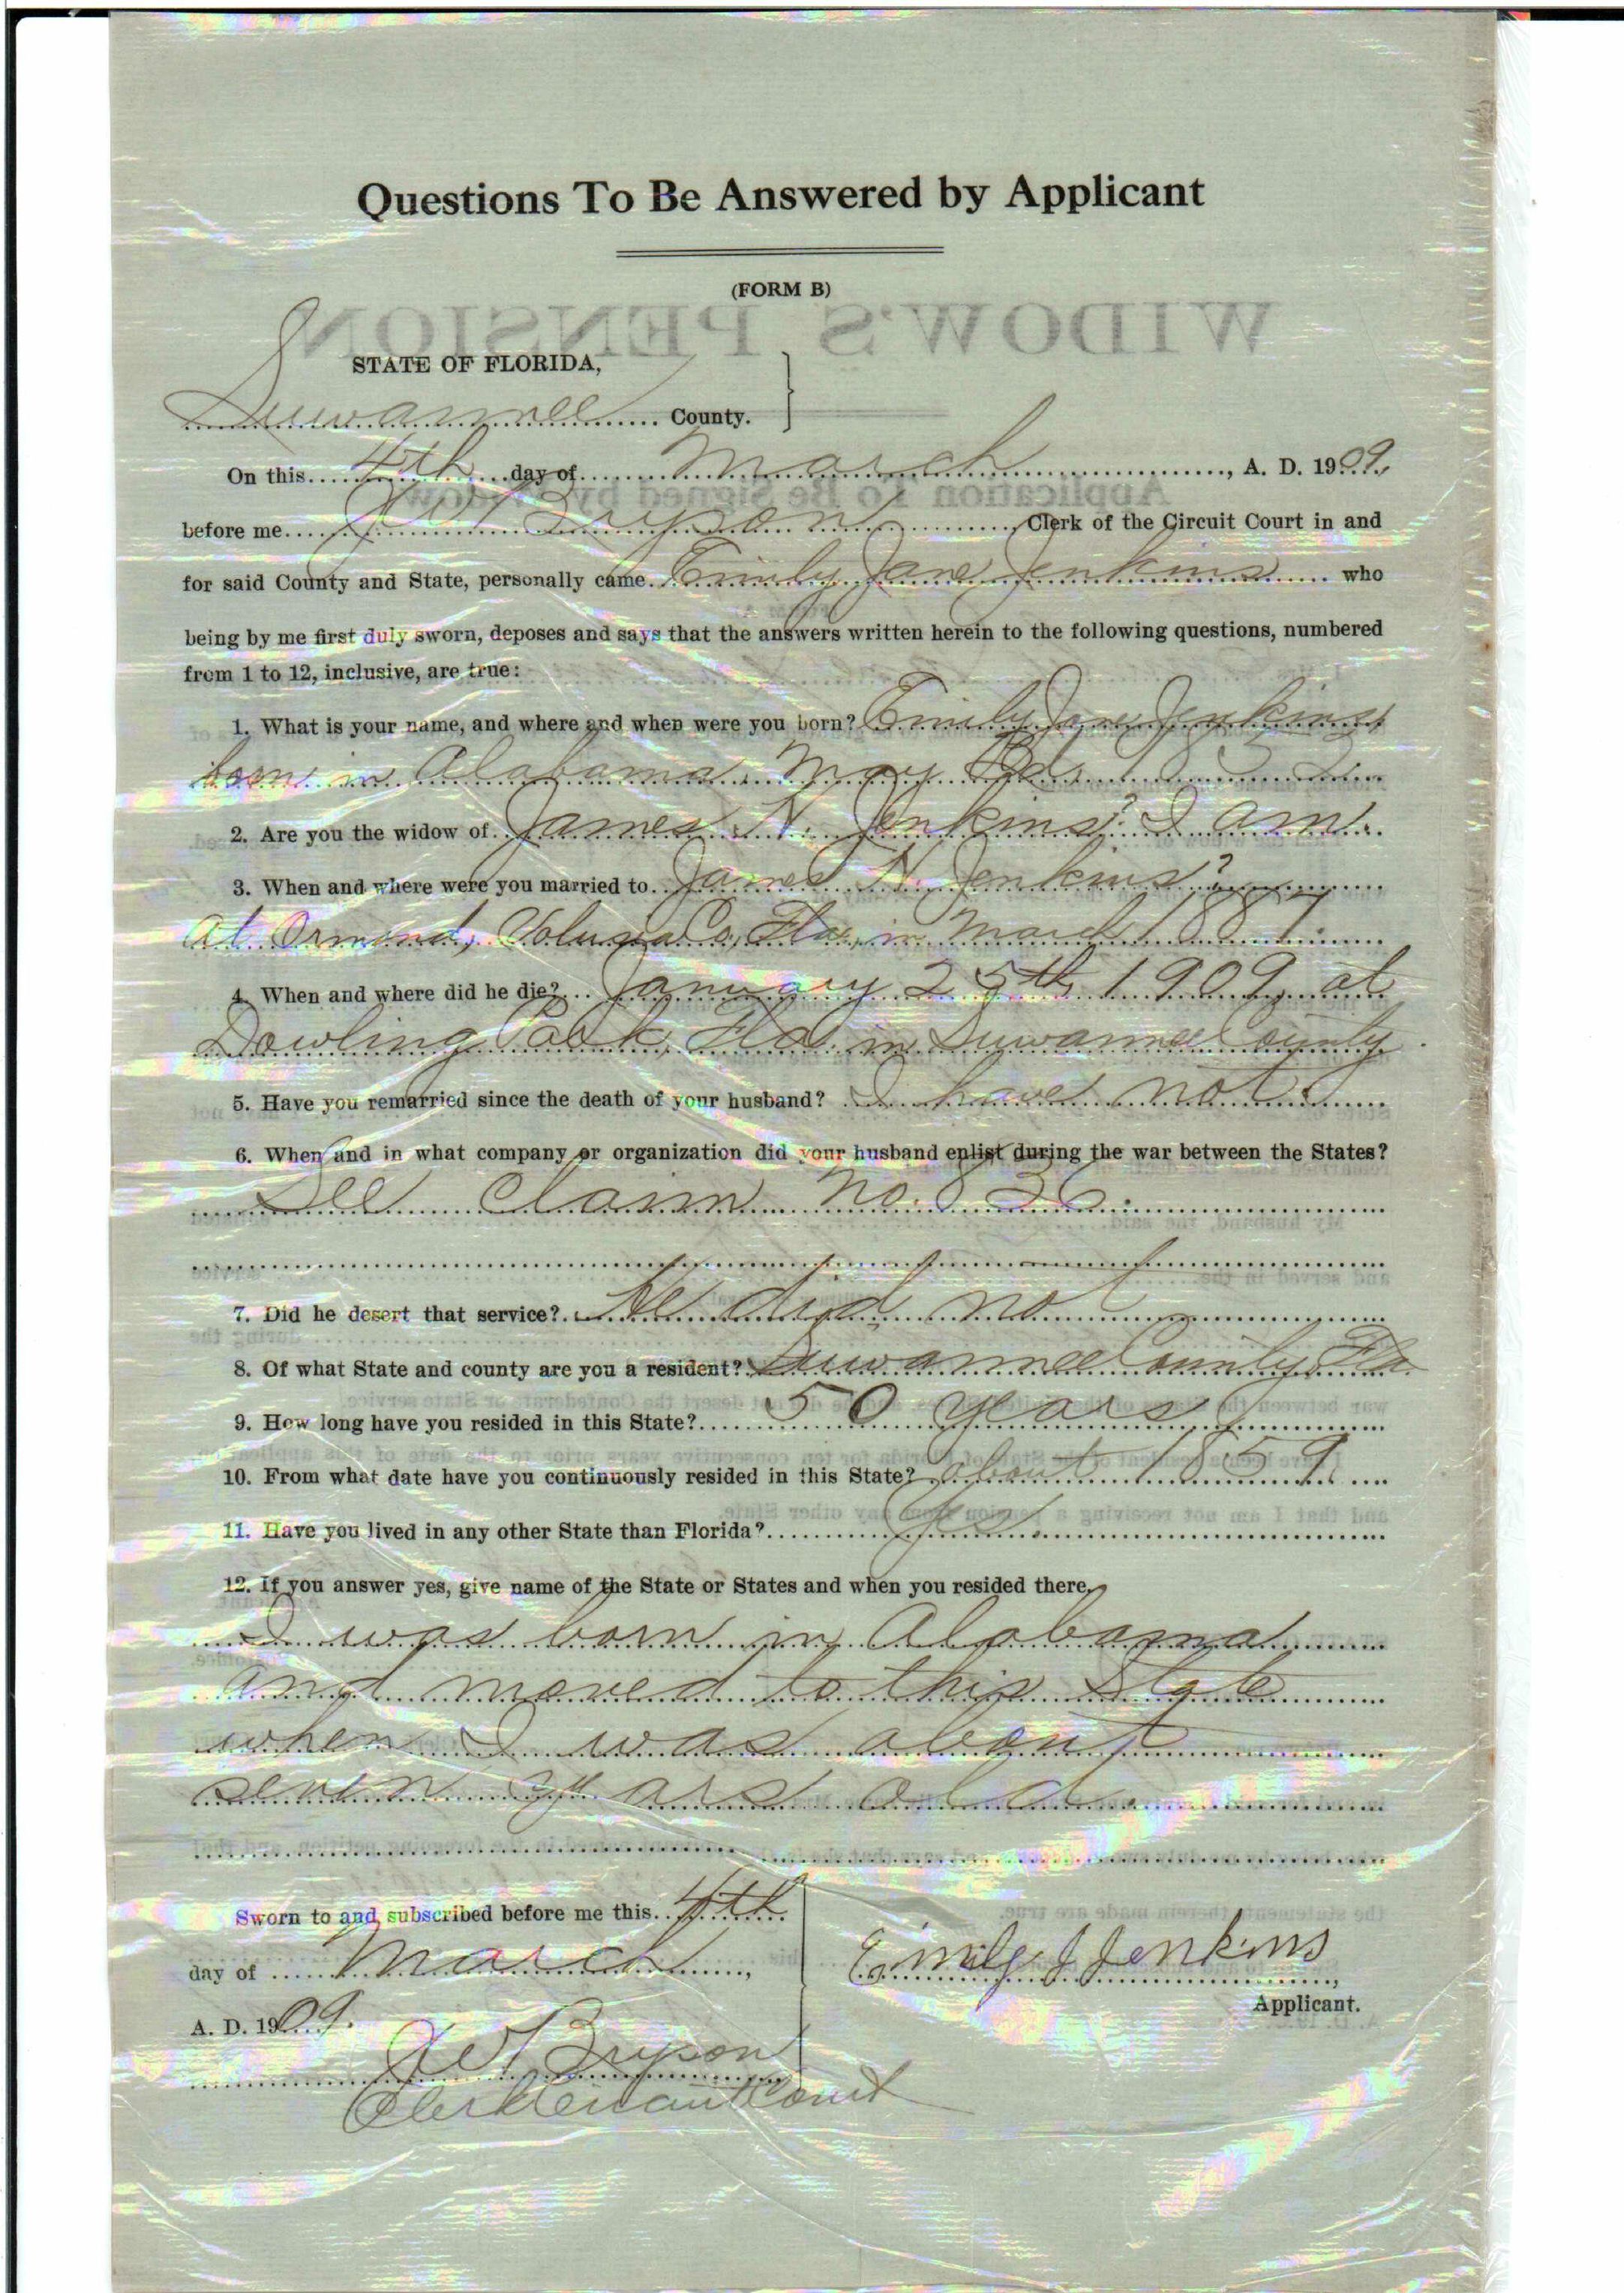 Questions To Be Answered by Applicant
(FORM B)
WIDOW'S PENSION
STATE OF FLORIDA,
Suwannee County.
On this 4th day of March, A. D. 1909,
before me J W Bryson, Clerk of the Circuit Court in and
for said County and State, personally came Emily Jane Jenkins who
being by me first duly sworn, deposes and says that the answers written herein to the following questions, numbered
from 1 to 12, inclusive, are true:
1. What is your name, and where and when were you born? Emily Jane Jenkins
born in Alabama. May 1852
2. Are you the widow of James N. Jenkins? I am.
3. When and where were you married to James N. Jenkins?
at Ormond, Volusia Co, Fla, in March 1887.
4. When and where did he die? January 25th, 1909, at
Dowling Park, Fla. in Suwannee County.
5. Have you remarried since the death of your husband? I have not.
6. When and in what company or organization did your husband enlist during the war between the States?
See Claim No. 836.
7. Did he desert that service? He did not
8. Of what State and county are you a resident? Suwannee County, Fla.
9. How long have you resided in this State? 50 years
10. From what date have you continuously resided in this State? about 1859
11. Have you lived in any other State than Florida? Yes.
12. If you answer yes, give name of the State or States and when you resided there,
I was born in Alabama
and moved to this State
when I was about
seven years old.
Sworn to and subscribed before me this 4th
day of March,
A. D. 1909.
J W Bryson
Clerk Circuit Court
Emily J Jenkins,
Applicant.